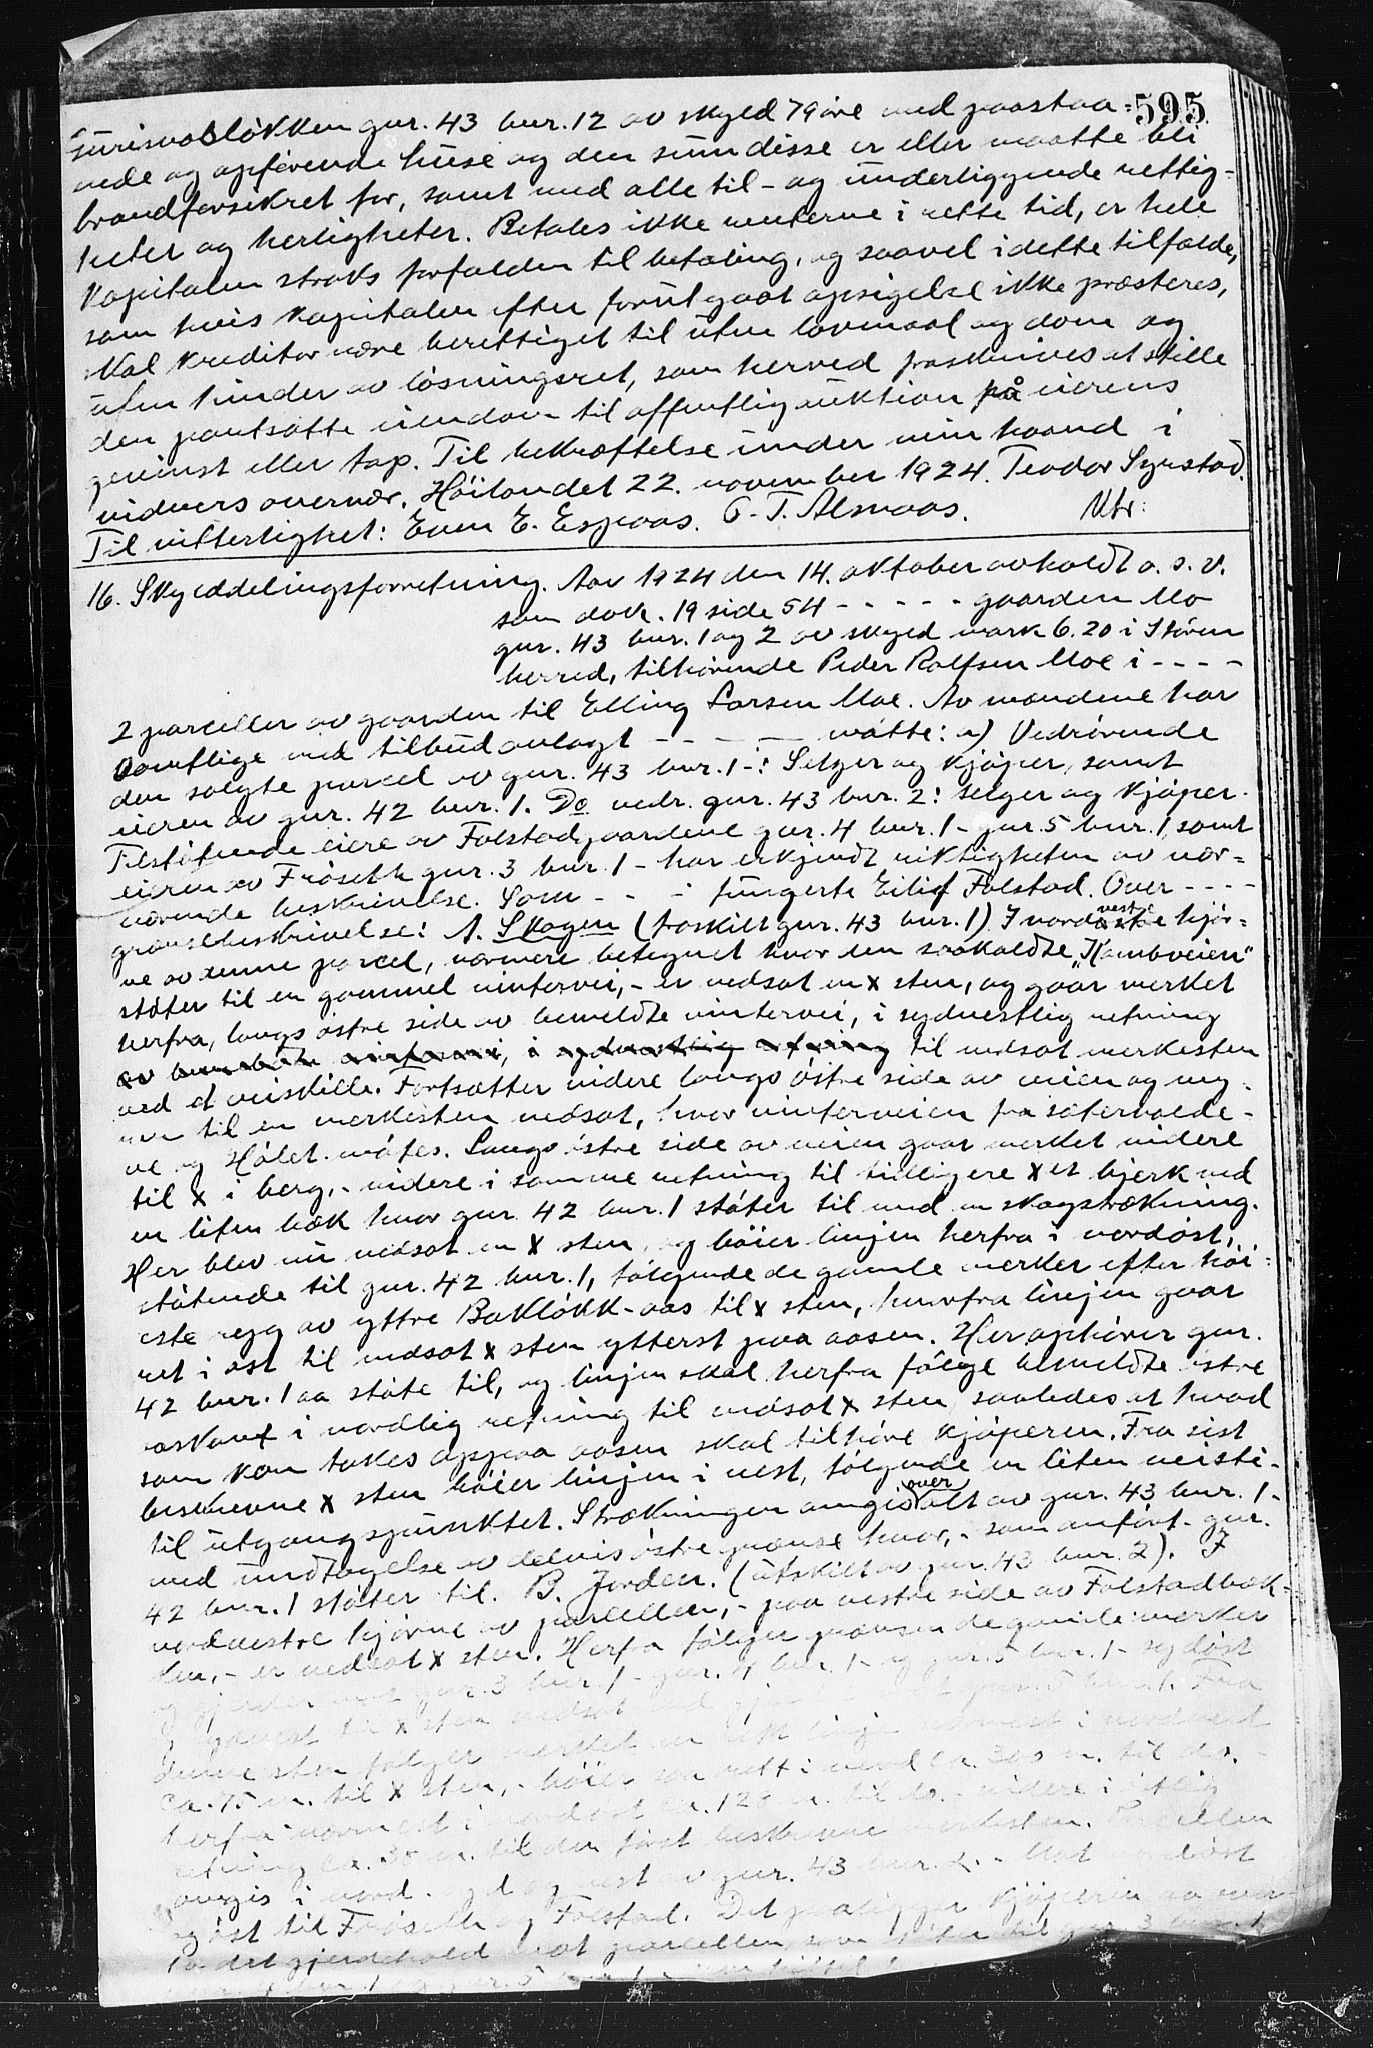 595
Gurisvaslökken gnr. 43 bnr. 12 av skyld 79 öre med paastaa-
ende og opförende huse og den sum disse er eller maatte bli
brandforsekret for, samt med alle til- og underliggende rettig-
heter og herligheter. Betales ikke renterne i rette tid, er hele
kapitalen straks forfalden til betaling, og saavel i dette tilfælde,
som hvis kapitalen efter forutgaat opsigelse ikke præsteres,
skal kreditor være berettiget til uten lovmaal og dom og
uten hinder av lösningsret, som herved fraskrives at stille
den pantsatte eiendom til offentlig auktion på eierens
gevinst eller tap. Til bekræftelse under min haand i
vidners overvær. Höilandet 22. november 1924. Teodor Syrstad.
Til vitterlighet: Even E. Espaas. O. T. Almaas. Utr:
16. Skylddelingsforretning. Aar 1924 den 14. oktober avholdt o. s. v.
som dok. 19 side 54 - - - - - gaarden Mo
gnr. 43 bnr. 1 og 2 av skyld mark 6.20 i Stören
herred, tilhörende Peder Rolfsen Moe i - - - -
2 parceller av gaarden til Elling Larsen Moe. Av mændene har
samtlige ved tilbud avlagt - - - - - mötte: a) Vedrörende
den solgte parcel av gnr. 43 bnr. 1 -: Selger og kjöper, samt
eieren av gnr. 42 bnr. 1. Do vedr. gnr. 43 bnr. 2: selger og kjöper.
Tilstötende eiere av Folstadgaardene gnr. 4 bnr. 1 - gnr. 5 bnr. 1, samt
eieren av Fröseth gnr. 3 bnr. 1 - har erkjendt riktigheten av nær-
værende beskrivelse. Som - - - fungerte Eilif Folstad. Over - - - -
grænsebeskrivelse: A. Skogen (fraskilt gnr. 43 bnr. 1) I nordvestre hjör-
ne av denne parcel, nærmere betegnet hvor den saakaldte "Kambveien"
stöter til en gammel vintervei, - er nedsat en x sten, og gaar merket
herfra, langs östre side av bemeldte vintervei, i sydvestlig retning
av bemeldte vintervei, i sydvestlig retning til nedsat merkesten
ved et veiskille. Fortsætter videre langs östre side av veien og
til en merkesten nedsat, hvor vinterveien fra
ne og Hölet mötes. Langs östre side av veien gaar merket videre
til x i berg, - videre i samme retning til tidligere x et bjerk ved
en liten bæk hvor gnr. 42 bnr. 1 stöter til med en skogstrækning.
Her blev nu nedsat en x sten, og böier linjen herfra i nordöst,
stötende til gnr. 42 bnr. 1, fölgende de gamle merker efter höi-
este rygg av yttre Baklökk-aas til x sten, hvorfra linjen gaar
ret i öst til nedsat x sten ytterst paa aasen. Her ophörer gnr.
42 bnr. 1 aa stöte til, og linjen skal herfra fölge bemeldte östre
aaskant i nordlig retning til nedsat x sten, saaledes at hvad
som kan takes op paa aasen skal tilhöre kjöperen. Fra sist
beskrevne x sten böier linjen i vest, fölgende en liten veisti -
til utgangspunktet. Strækningen omgis overalt av gnr. 43 bnr. 1 -
med undtagelse av delvis östre grænse hvor, - som anfört - gnr.
42 bnr. 1 stöter til. B. Jordeen. (utskilt av gnr. 43 bnr. 2). I
nordvestre hjörne av parcellen, - paa vestre side av Folstadbæk-
ken, - er nedsat x sten. Herfra fölger grænsen de gamle merker
og gjerder mot gnr. 3 bnr. 1 - gnr. 4 bnr. 1 - og gnr. 5 bnr. 1 - sydöst
sydvest til x sten nedsat ved gnr. 5 bnr. 1. Fra
denne sten fölger merket en rek linje nærmest i nordvest
ca. 75 m. til x sten, - böier saa rett i nord ca. 300 m. til do. -
herfra nærmest i nordöst ca. 128 m. til do. - videre i östlig
retning ca. 30 m. til den först beskrevne merkesten. Parcellen
omgis i nord, syd og vest av gnr. 43 bnr. 2. - Mot nordöst
og öst til Fröseth og Folstad. Det paaligger kjöperen
la det gjerdehold mot parcellen som stöter til gnr. 3 bnr. 1